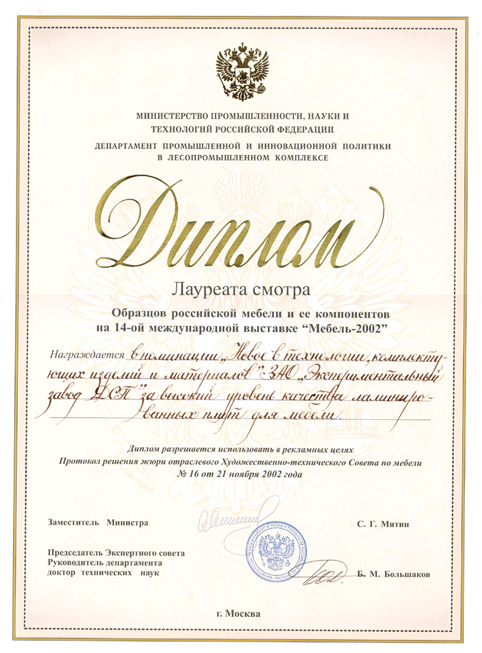 МИНИСТЕРСТВО ПРОМЫШЛЕННОСТИ, НАУКИ И
ТЕХНОЛОГИЙ РОССИЙСКОЙ ФЕДЕРАЦИИ
ДЕПАРТАМЕНТ ПРОМЫШЛЕННОЙ И ИННОВАЦИОННОЙ ПОЛИТИКИ
В ЛЕСОПРОМЫШЛЕННОМ КОМПЛЕКСЕ
Диплом
Лауреата смотра
Образцов российской мебели и ее компонентов
на 14-ой международной выставке “Мебель-2002”
Награждается в номинации „Новое в технологии, комплекту-
ющих изделий и материалов” ЗАО „Экспериментальный
завод ДСП” за высокий уровень качества ламиниро-
ванных плит для мебели.
Диплом разрешается использовать в рекламных целях
Протокол решения жюри отраслевого Художественно-технического Совета по мебели
№ 16 от 21 ноября 2002 года
Заместитель Министра
С. Г. Митин
Председатель Экспертного совета
Руководитель департамента
доктор технических наук
Б. М. Большаков
г. Москва